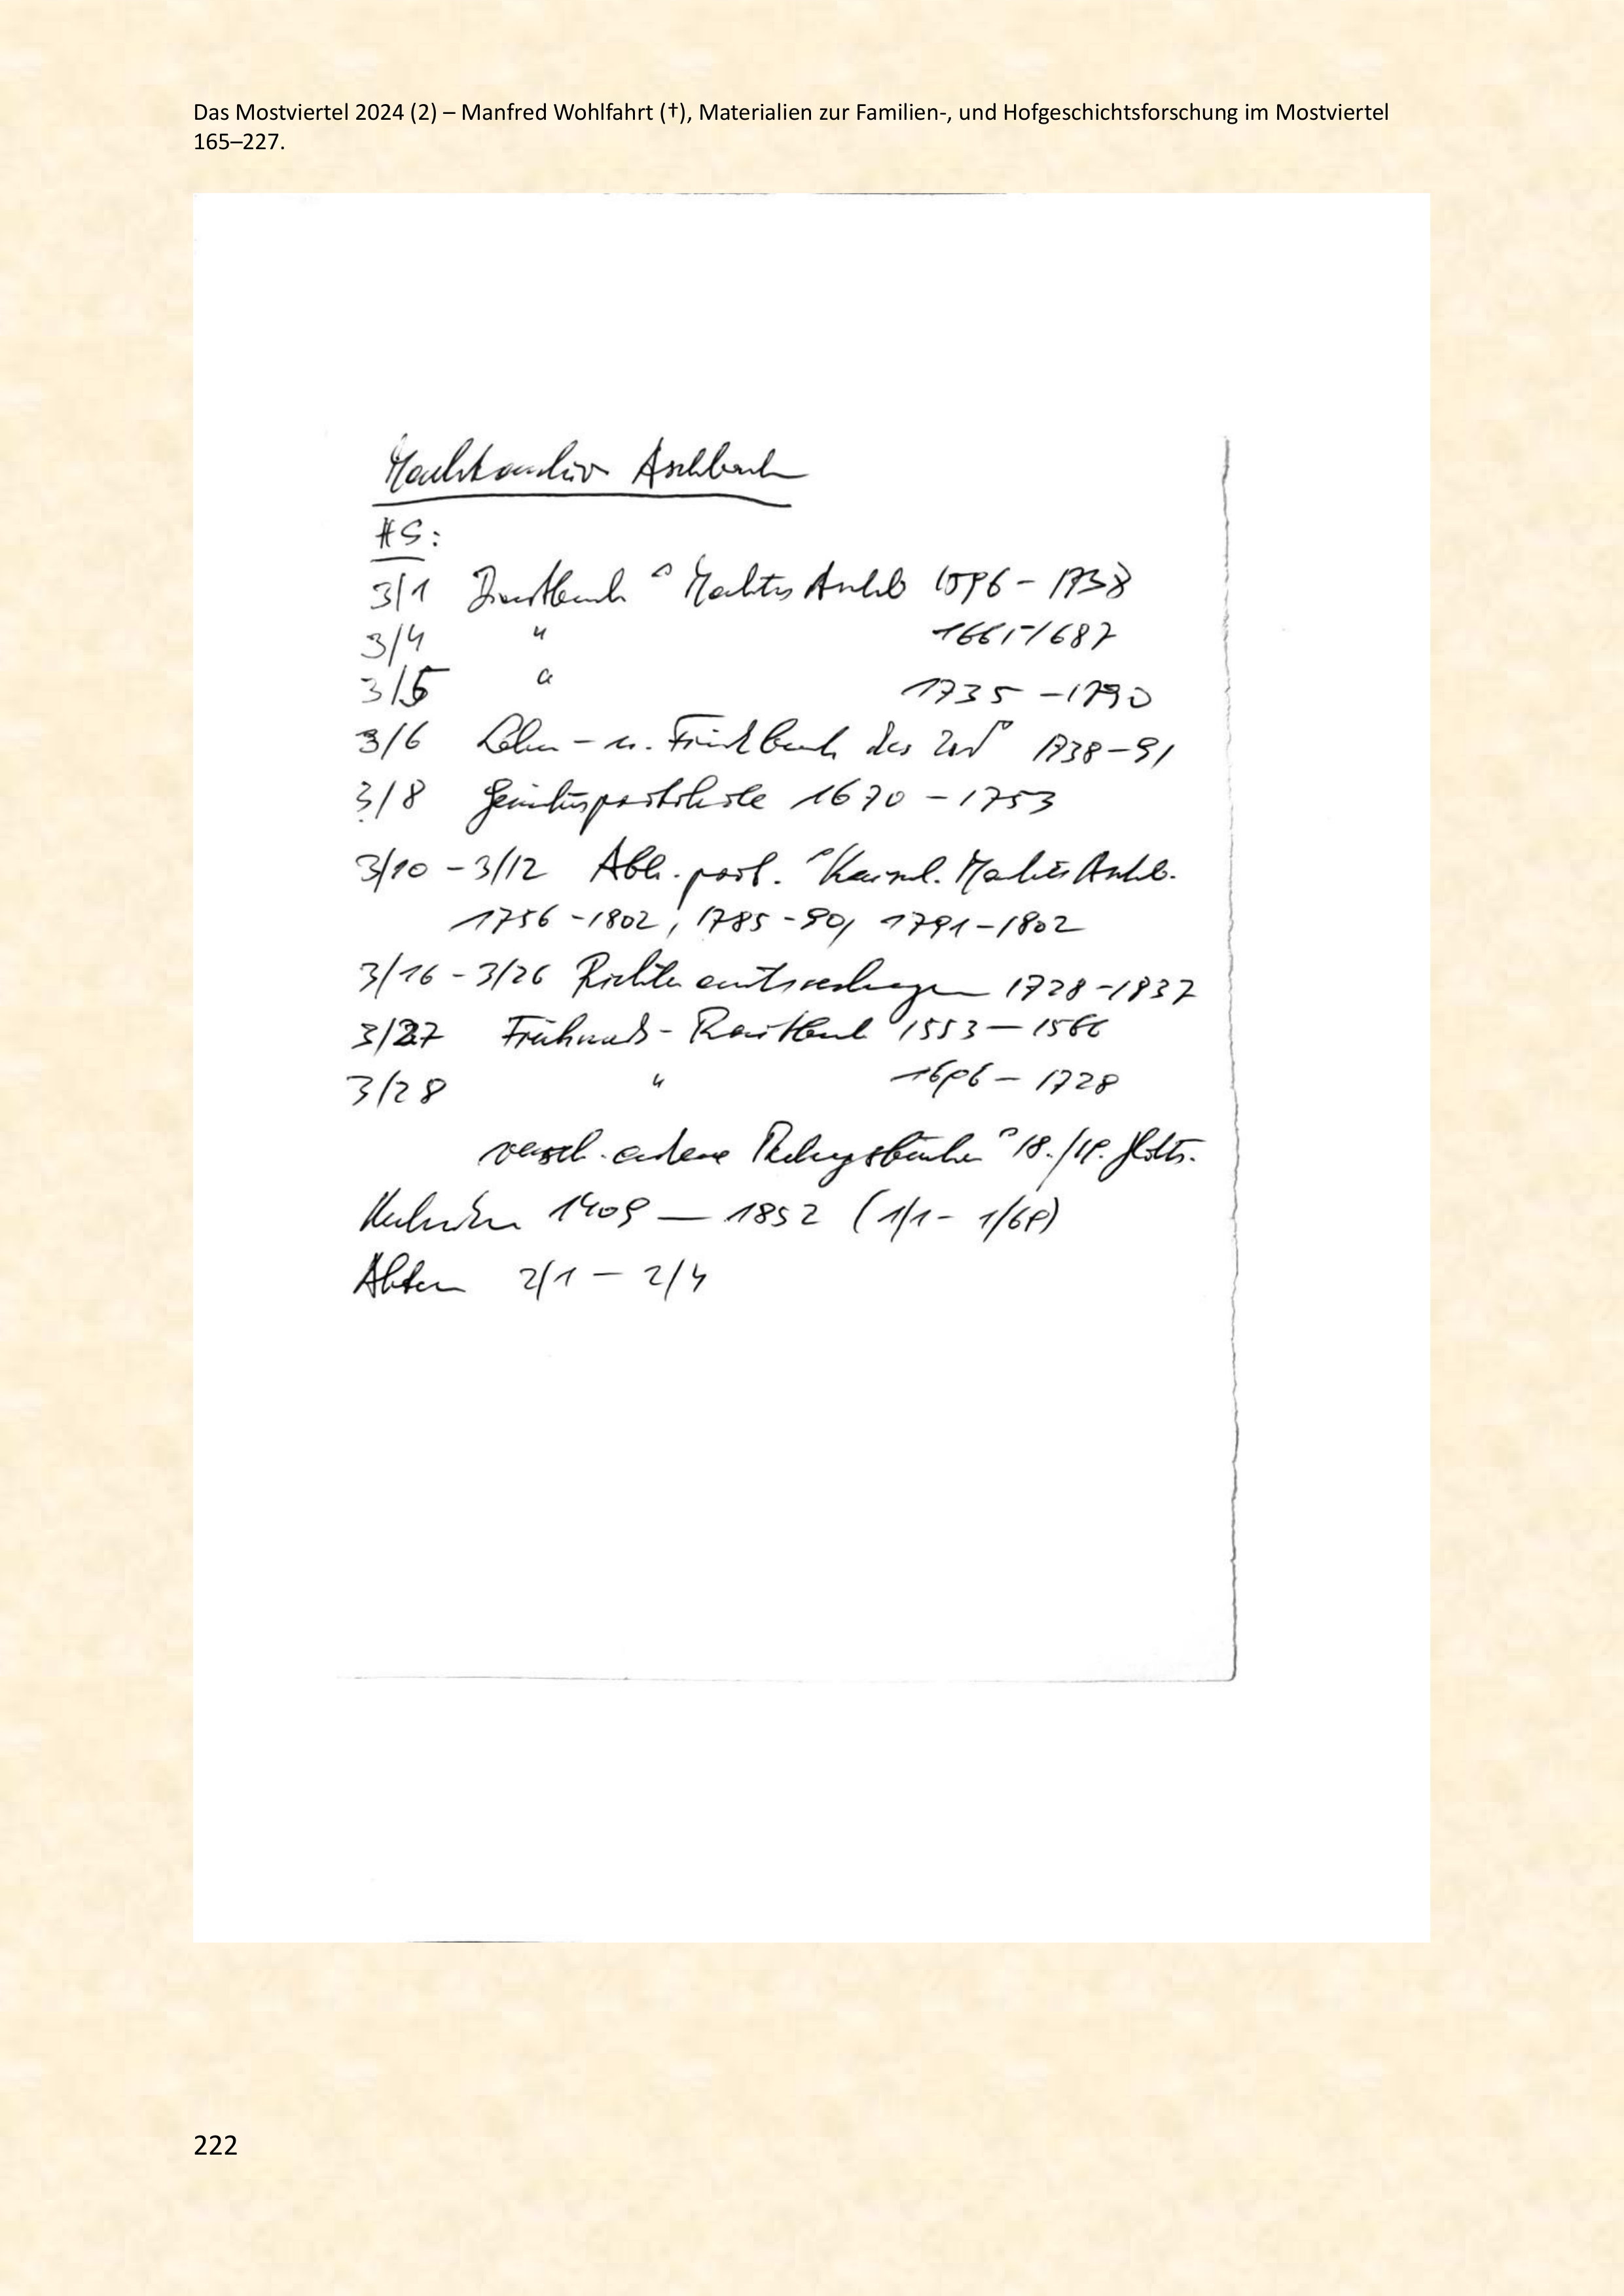 Das Mostviertel 2024 (2) – Manfred Wohlfahrt (†), Materialien zur Familien-, und Hofgeschichtsforschung im Mostviertel
165–227.
Marktarchiv Aschbach
HS:
3/1 Dienstbuch Marktes Aschb 1596 – 1738
3/4 " 1661-1687
3/5 " 1735 – 1790
3/6 Lehen- u. des 1738–91
3/8 Gerichtsprotokolle 1670 – 1753
3/10 – 3/12 Abh. prot. Marktes Aschb.
1756 – 1802, 1785 – 90, 1791 – 1802
3/16 – 3/26 Richteramtsrechnungen 1728 – 1837
3/27 Frühmeß- Raitbuch 1553 – 1566
3/28 " 1696 – 1728
versch. andere Rechnungsbücher 18./19. Jhdts.
Urkunden 1409 — 1852 (1/1 – 1/69)
Akten 2/1 – 2/4
222